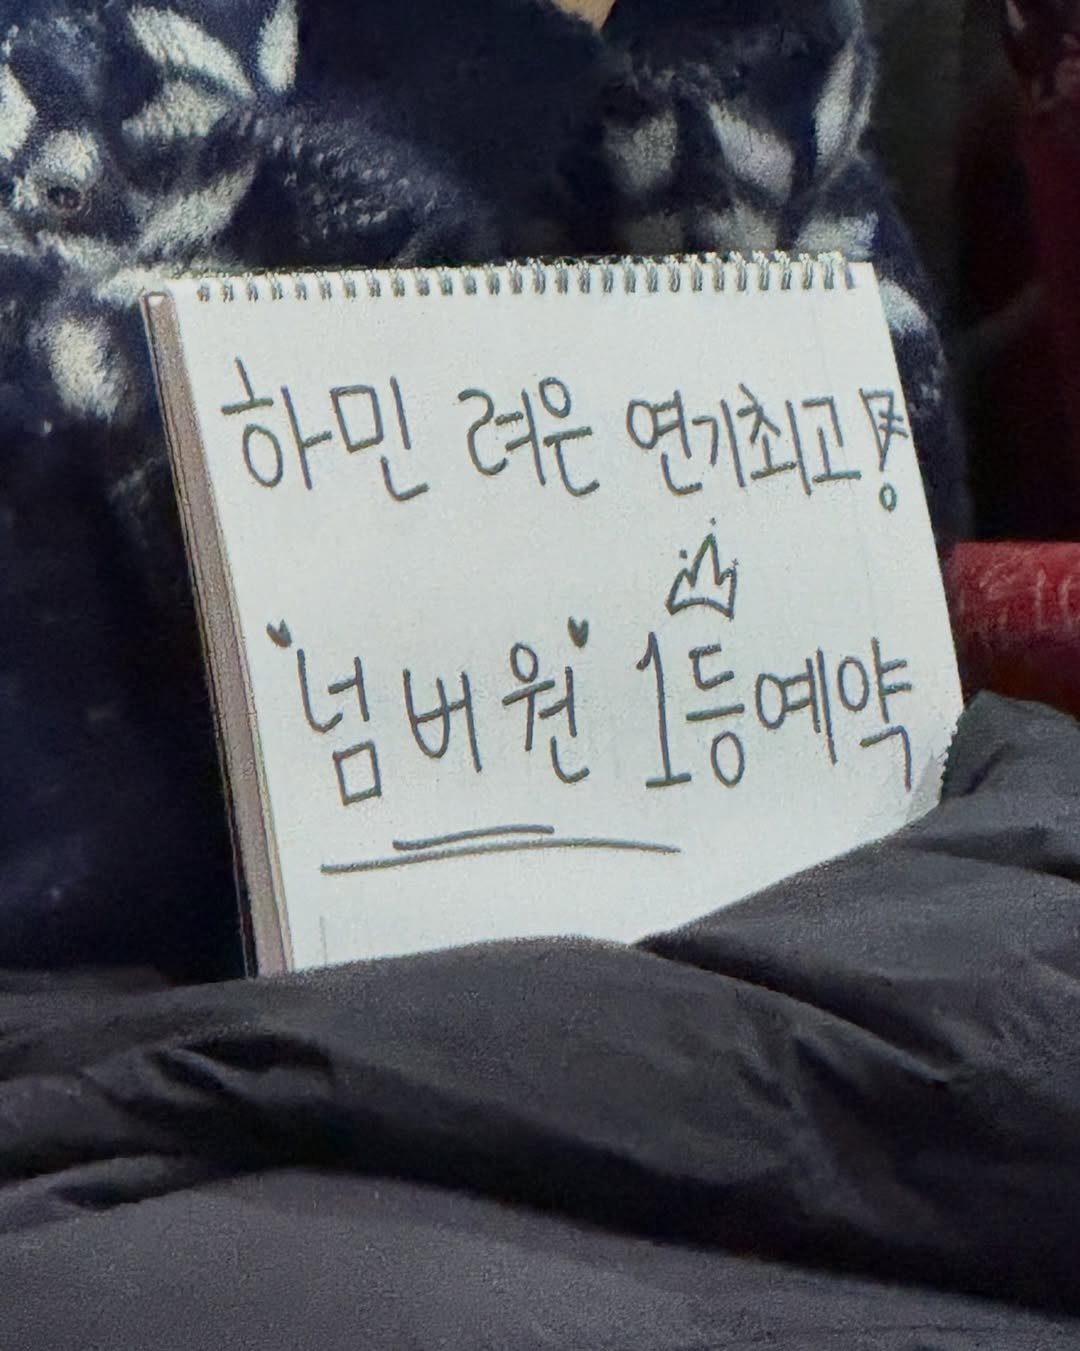 하민 려은 연기최고!
"넘버원" 1등예약